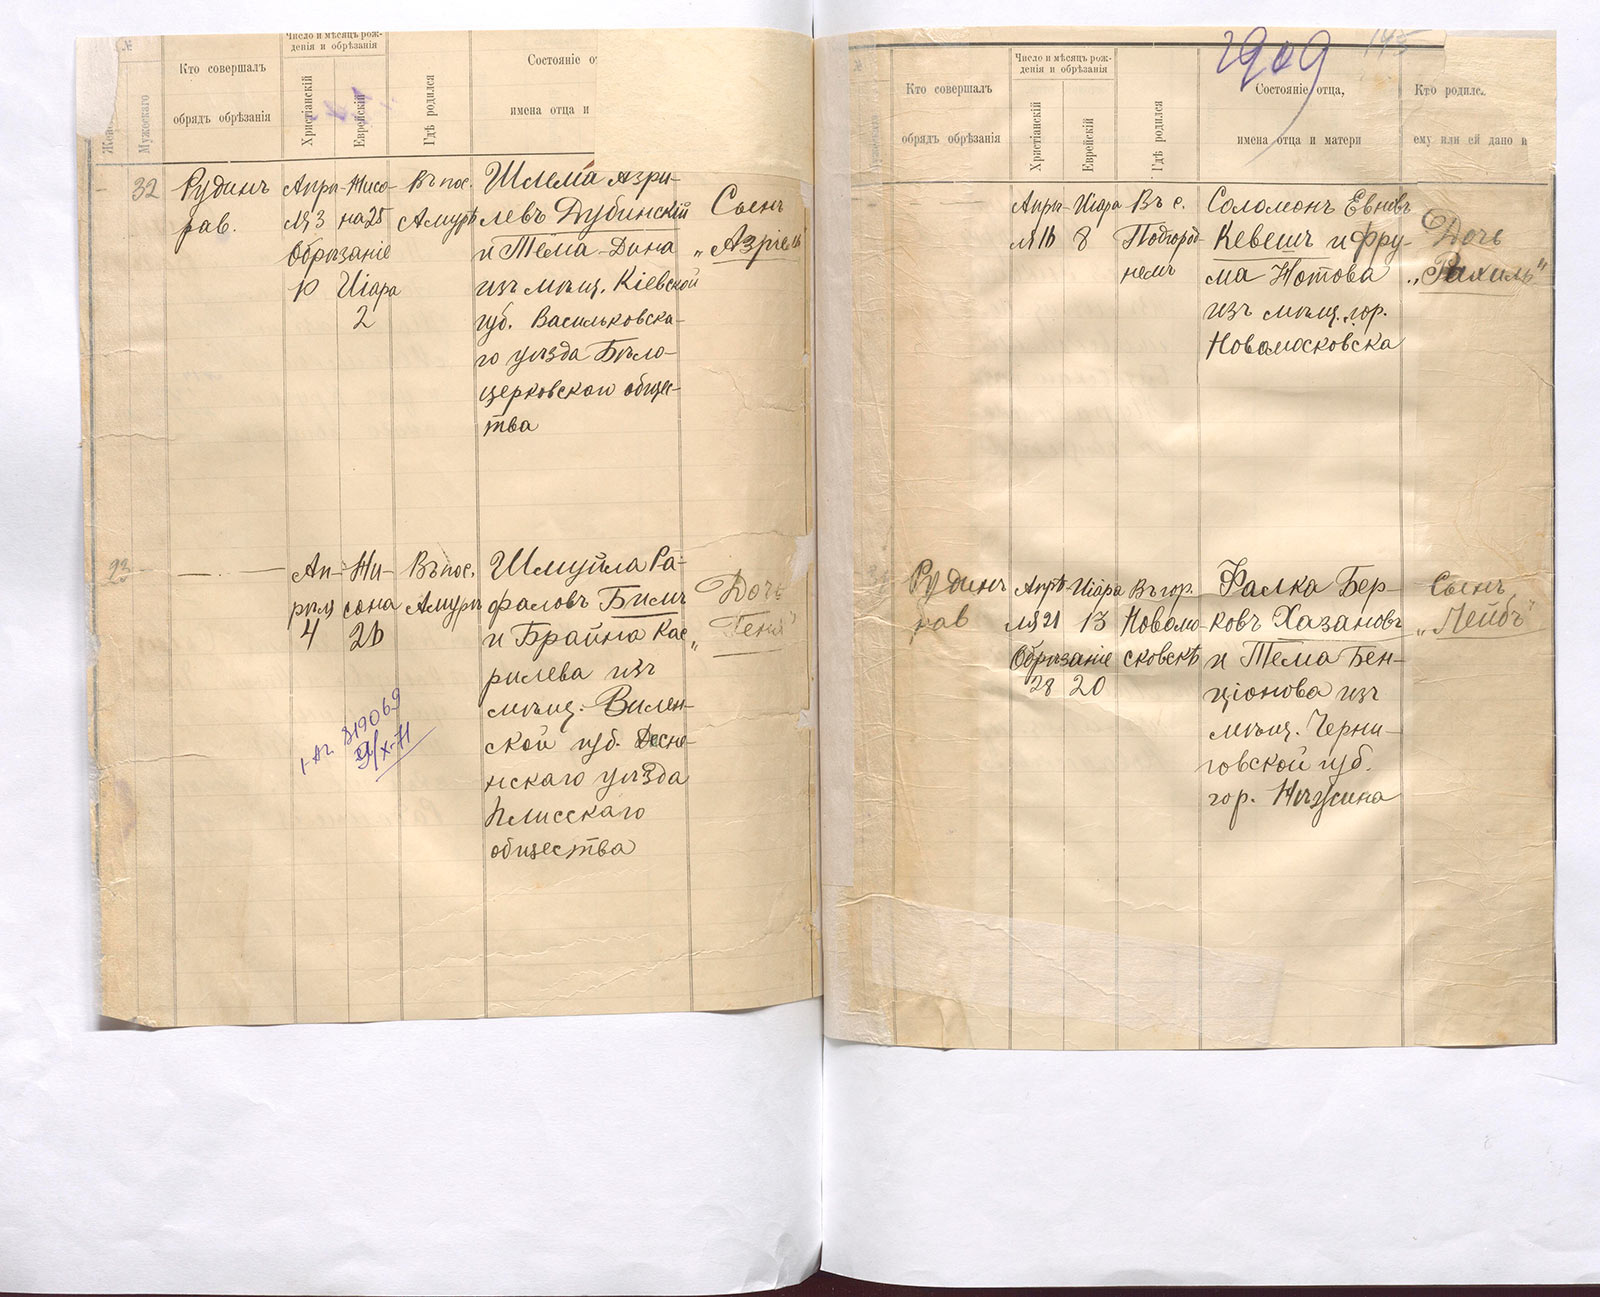 №
Кто совершалъ
обрядъ обрѣзанія
Число и мѣсяцъ рож-
денія и обрѣзанія
Христіанскій
Еврейскій
Гдѣ родился
Состояніе о
имена отца и
Мужескаго
32
Рудинъ
рав.
Апрѣ-
ля 3
Нисо-
на 25
Обрѣзаніе
10 Иіара
2
Въ пос.
Амурѣ
Шлема Азри-
левъ Дубинскій
и Тёма-Дина
изъ мѣщ. Кіевской
губ. Васильковска-
го уѣзда Бѣло-
церковскаго общес-
тва
Сынъ
„Азріель"
23
Ап-
рѣля
4
Ни-
сона
26
Въ пос.
Амурѣ
Шмуйла Ра-
фаловъ Бимъ
и Брайна Кас
рилева изъ
мѣщ. Вилен-
ской губ. Дисне-
нскаго уѣзда
Плисскаго
общества
Дочь
„Геня"
319069
9/X-41
2909
145
Кто совершалъ
обрядъ обрѣзанія
Число и мѣсяцъ рож-
денія и обрѣзанія
Христіанскій
Еврейскій
Гдѣ родился
Состояніе отца,
имена отца и матери
Кто родилс.
ему или ей дано и
Апрѣ-
ля 16
Иіара
8
Въ с.
Подгород-
немъ
Соломонъ Евновъ
Кевешъ и Фру-
ма Нотова
изъ мѣщ. гор.
Новомосковска
Дочь
„Рахиль"
Рудинъ
рав
Апрѣ-
ля 21
Иіара
13
Обрѣзаніе
28 20
Въ гор.
Новомо-
сковскѣ
Фалка Бер-
ковъ Хазановъ
и Тема Бен-
ціонова изъ
мѣщ. Черни-
говской губ.
гор. Нѣжина
Сынъ
„Лейбъ"